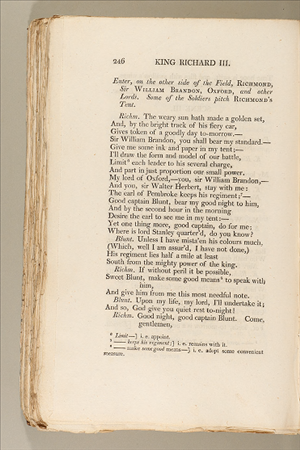 246 KING RICHARD III.
Enter, on the other side of the Field, RICHMOND,
Sir WILLIAM BRANDON, OXFORD, and other
Lords. Some of the Soldiers pitch RICHMOND'S
Tent.
Richm. The weary sun hath made a golden set,
And, by the bright track of his fiery car,
Gives token of a goodly day to-morrow.—
Sir William Brandon, you shall bear my standard.—
Give me some ink and paper in my tent;—
I'll draw the form and model of our battle,
Limit⁶ each leader to his several charge,
And part in just proportion our small power.
My lord of Oxford,—you, sir William Brandon,—
And you, sir Walter Herbert, stay with me:
The earl of Pembroke keeps his regiment;⁷—
Good captain Blunt, bear my good night to him,
And by the second hour in the morning
Desire the earl to see me in my tent:—
Yet one thing more, good captain, do for me;
Where is lord Stanley quarter'd, do you know?
Blunt. Unless I have mista'en his colours much,
(Which, well I am assur'd, I have not done,)
His regiment lies half a mile at least
South from the mighty power of the king.
Richm. If without peril it be possible,
Sweet Blunt, make some good means⁸ to speak with
him,
And give him from me this most needful note.
Blunt. Upon my life, my lord, I'll undertake it;
And so, God give you quiet rest to-night!
Richm. Good night, good captain Blunt. Come,
gentlemen,
⁶ Limit—] i. e. appoint.
⁷ —— keeps his regiment;] i. e. remains with it.
⁸ —— make some good means—] i. e. adopt some convenient
measure.